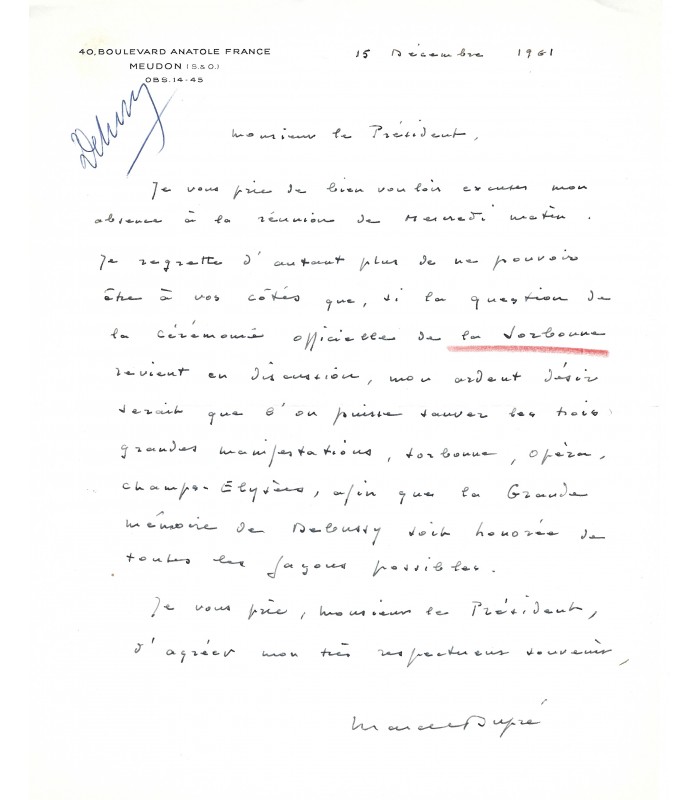 40, BOULEVARD ANATOLE FRANCE
MEUDON (S.&O.)
OBS. 14-45
15 Décembre 1961
Debussy
Monsieur le Président,
Je vous prie de bien vouloir excuser mon
absence à la réunion de Mercredi matin.
Je regrette d'autant plus de ne pouvoir
être à vos côtés que, si la question de
la cérémonie officielle de la Sorbonne
revient en discussion, mon ardent désir
serait que l'on puisse sauver les trois
grandes manifestations, Sorbonne, Opéra,
Champs-Elysées, afin que la Grande
mémoire de Debussy soit honorée de
toutes les façons possibles.
Je vous prie, Monsieur le Président,
d'agréer mon très respectueux souvenir,
Marcel Dupré